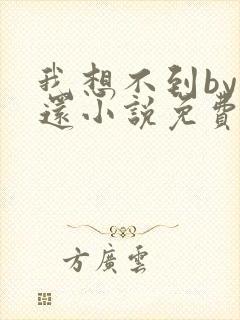 我想不到by
還小說免費
方廣雲